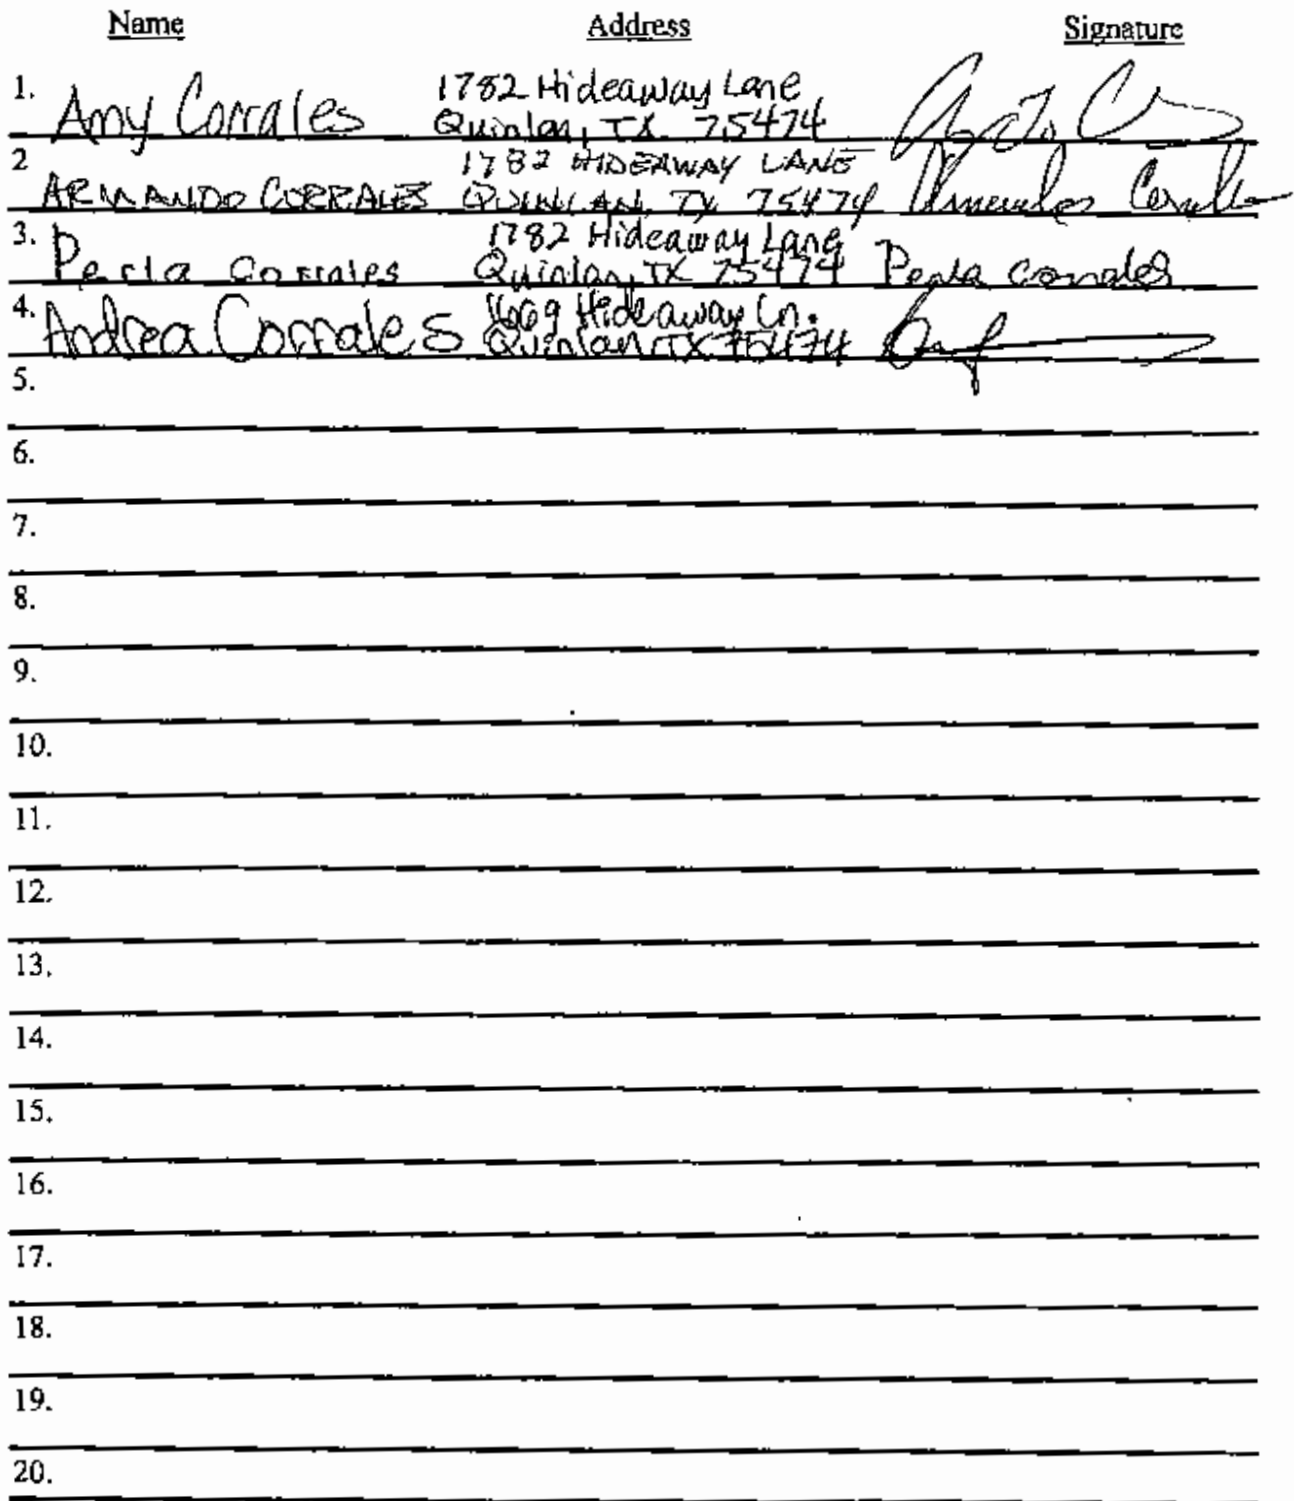 Name Address Signature
1. Amy Corrales 1782 Hideaway Lane
Quinlan, TX 75474
2 ARMANDO CORRALES 1782 HIDEAWAY LANE
QUINLAN, TX 75474
3. Perla Corrales 1782 Hideaway Lane
Quinlan, TX 75474 Perla Corrales
4. Andrea Corrales 1669 Hideaway Ln.
Quinlan, TX 75474
5.
6.
7.
8.
9.
10.
11.
12.
13.
14.
15.
16.
17.
18.
19.
20.